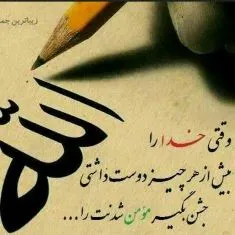 زیباترین
الله
وقتی خدا را
بیش از هر چیز دوست داشتی
جشن بگیر مؤمن شدنت را ...